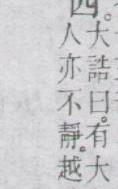 四。大誥曰。有大
人亦不靜。越